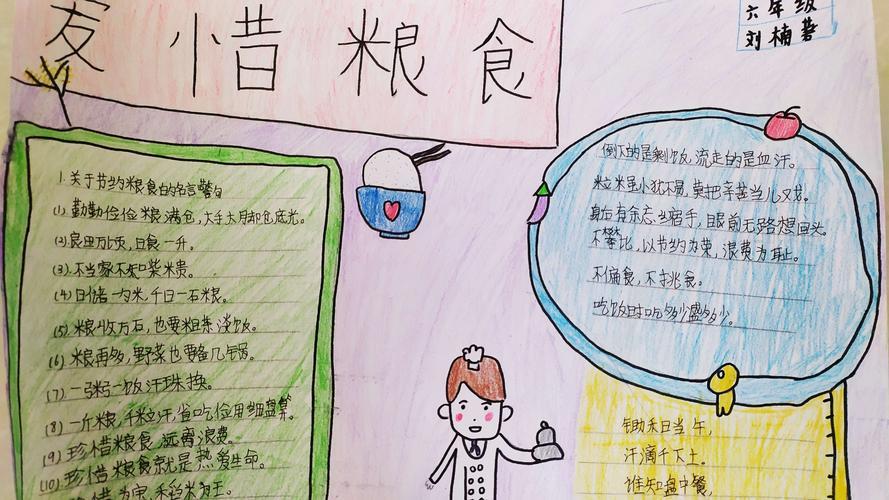 爱惜粮食
六年级
刘楠著
1.关于节约粮食的名言警句
(1).勤勤俭俭粮满仓,大手大脚却仓底光。
(2).良田万顷,日食一升。
(3).不当家不知柴米贵。
(4).日储一勺米,千日一石粮。
(5).粮收万石,也要粗茶淡饭。
(6).粮再多,野菜也要备几锅。
(7).一粥一饭汗珠换。
(8).一斤粮,千粒汗,省吃俭用细盘算。
(9).珍惜粮食,远离浪费。
(10).珍惜粮食就是热爱生命。
为宝,禾稻米为王。
倒下的是剩饭,流走的是血汗。
粒米虽小犹不易,莫把辛苦当儿戏。
身后有余忘缩手,眼前无路想回头。
不攀比,以节约为荣,浪费为耻。
不偏食,不挑食。
吃饭时吃多少盛多少。
锄禾日当午,
汗滴禾下土。
谁知盘中餐